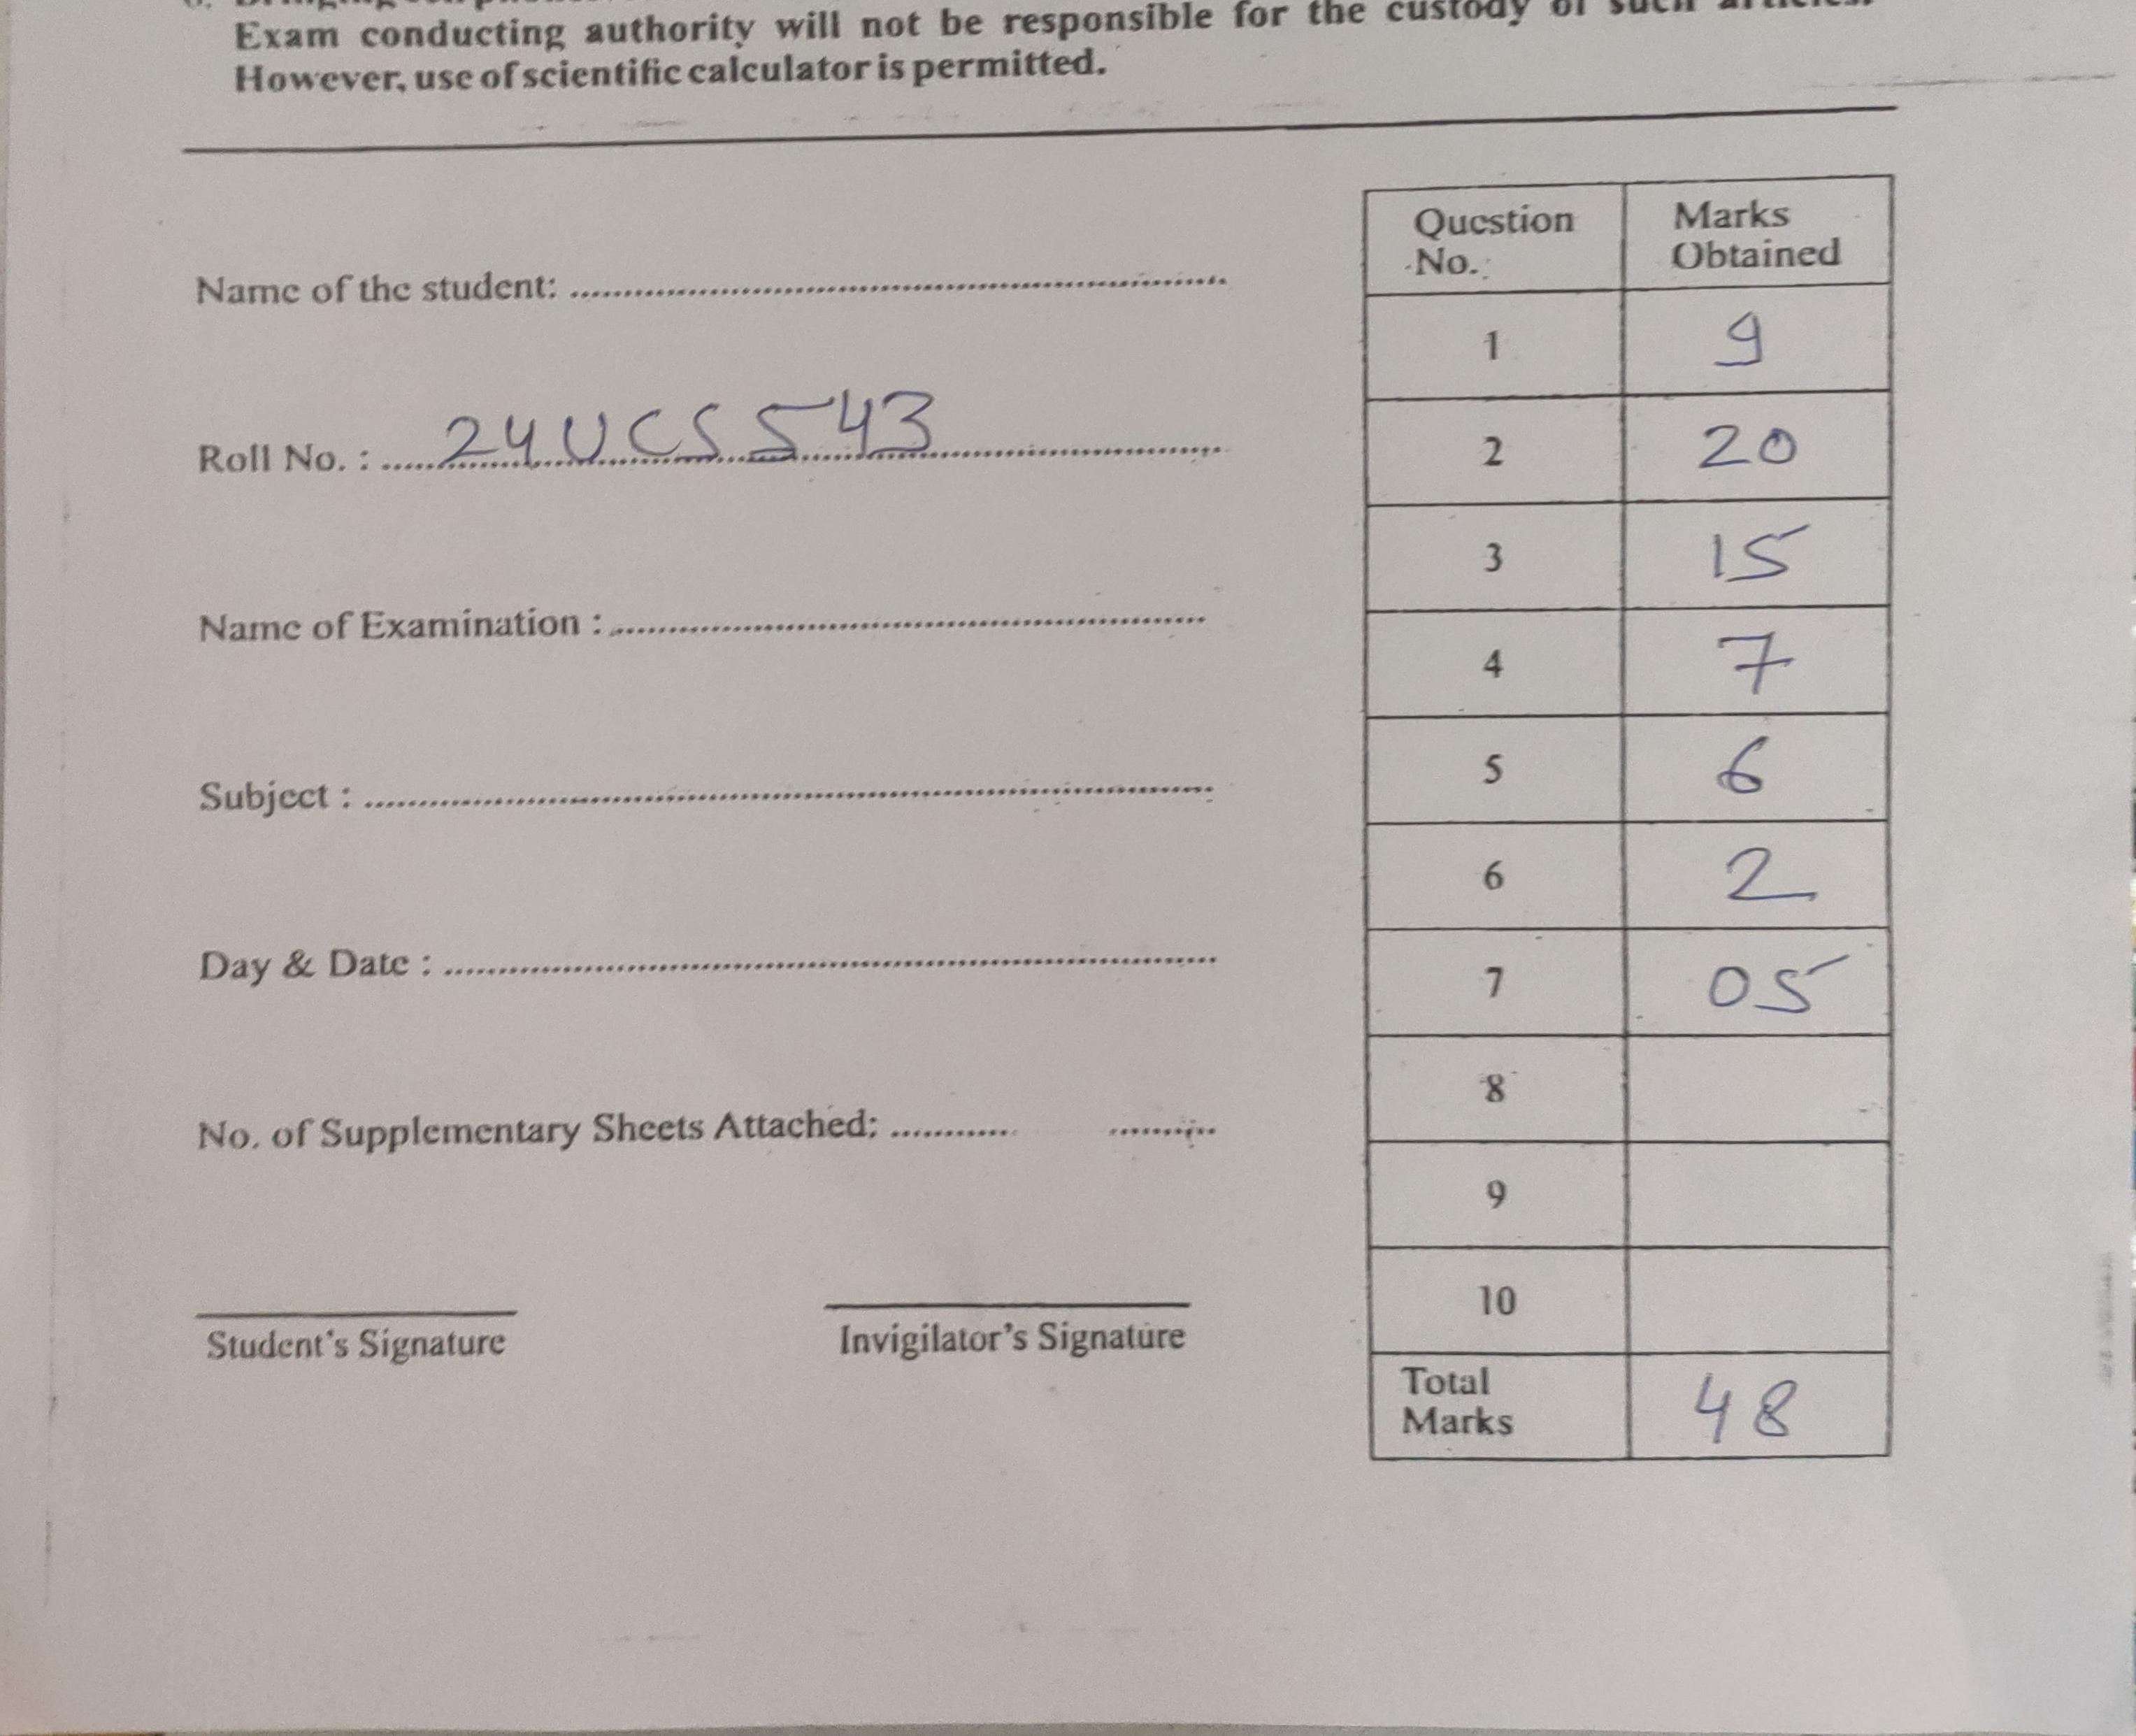 Exam conducting authority will not be responsible for the custody of such articles.
However, use of scientific calculator is permitted.
Name of the student: ........................................
Roll No. : 24UCS543
Name of Examination : ........................................
Subject : ........................................
Day & Date : ........................................
No. of Supplementary Sheets Attached: ............ ..........
Student's Signature
Invigilator's Signature
Question No. Marks Obtained
1 9
2 20
3 15
4 7
5 6
6 2
7 05
8
9
10
Total Marks 48